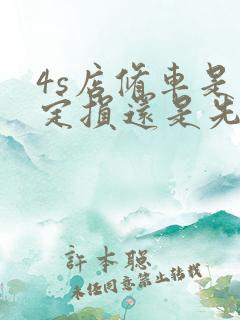 4s店修車是
定損還是先
許本聪
未经同意禁止转载